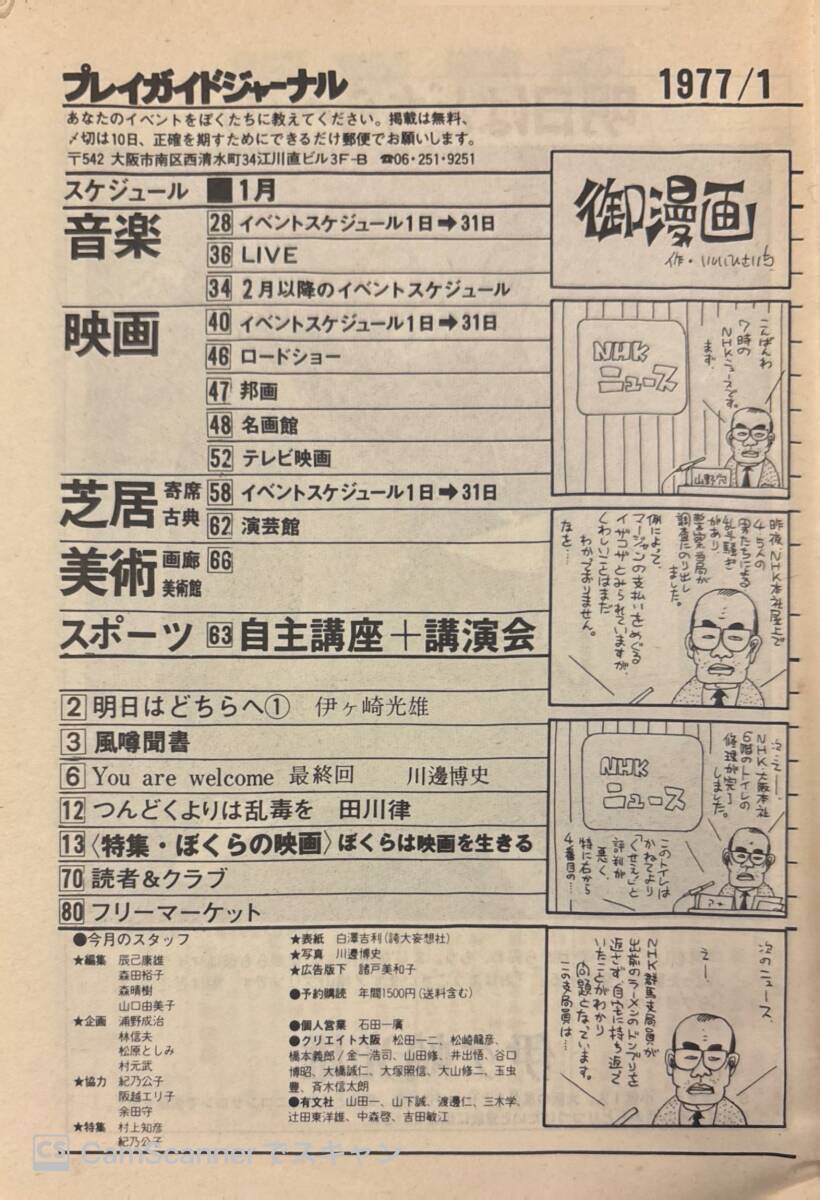 プレイガイドジャーナル
1977/1
あなたのイベントをぼくたちに教えてください。掲載は無料、
〆切は10日、正確を期すためにできるだけ郵便でお願いします。
〒542 大阪市南区西清水町34江川直ビル3F-B ☎06・251・9251
スケジュール ■1月
音楽
28 イベントスケジュール1日➡31日
36 LIVE
34 2月以降のイベントスケジュール
映画
40 イベントスケジュール1日➡31日
46 ロードショー
47 邦画
48 名画館
52 テレビ映画
芝居 寄席 古典
58 イベントスケジュール1日➡31日
62 演芸館
美術 画廊 美術館 66
スポーツ 63 自主講座+講演会
2 明日はどちらへ① 伊ヶ崎光雄
3 風噂聞書
6 You are welcome 最終回 川邊博史
12 つんどくよりは乱毒を 田川律
13 〈特集・ぼくらの映画〉ぼくらは映画を生きる
70 読者&クラブ
80 フリーマーケット
●今月のスタッフ
★編集 辰己康雄
森田裕子
森晴樹
山口由美子
★企画 浦野成治
林信夫
松原としみ
村元武
★協力 紀乃公子
阪越エリ子
余田守
★特集 村上知彦
紀乃公子
★表紙 白澤吉利(誇大妄想社)
★写真 川邊博史
★広告版下 諸戸美和子
●予約購読 年間1500円(送料含む)
●個人営業 石田一廣
●クリエイト大阪 松田一二、松崎龍彦、
橋本義郎/金一浩司、山田修、井出悟、谷口
博昭、大橋誠仁、大塚照信、大山修二、玉虫
豊、斉木信太朗
●有文社 山田一、山下誠、渡邊仁、三木学、
辻田東洋雄、中森啓、吉田敏江
御漫画
作・いしいひさいち
こんばんわ
7時の
NHKニュースです。
まず、
NHK
ニュース
昨夜、NHK本社屋上で
4、5人の
男たちによる
乱斗騒ぎ
があり、
警察当局が
調査にのり出し
ました。
例によって、
マージャンの支払いをめぐる
イザコザとみられていますが、
くわしいことはまだ
わかっておりません。
なを…
次ー、
NHK大阪本社
6階のトイレの
修理が完了
しました。
NHK
ニュース
このトイレは
かねてより
「くせえ」と
評判が
悪く、
特に右から
4番目の…
次のニュース、
えー、
NHK群馬支局員が
出前のラーメンのドンブリを
返さず、自宅に持ち返って
いたことがわかり
問題となっています。
この支局員は…
CS CamScannerでスキャン